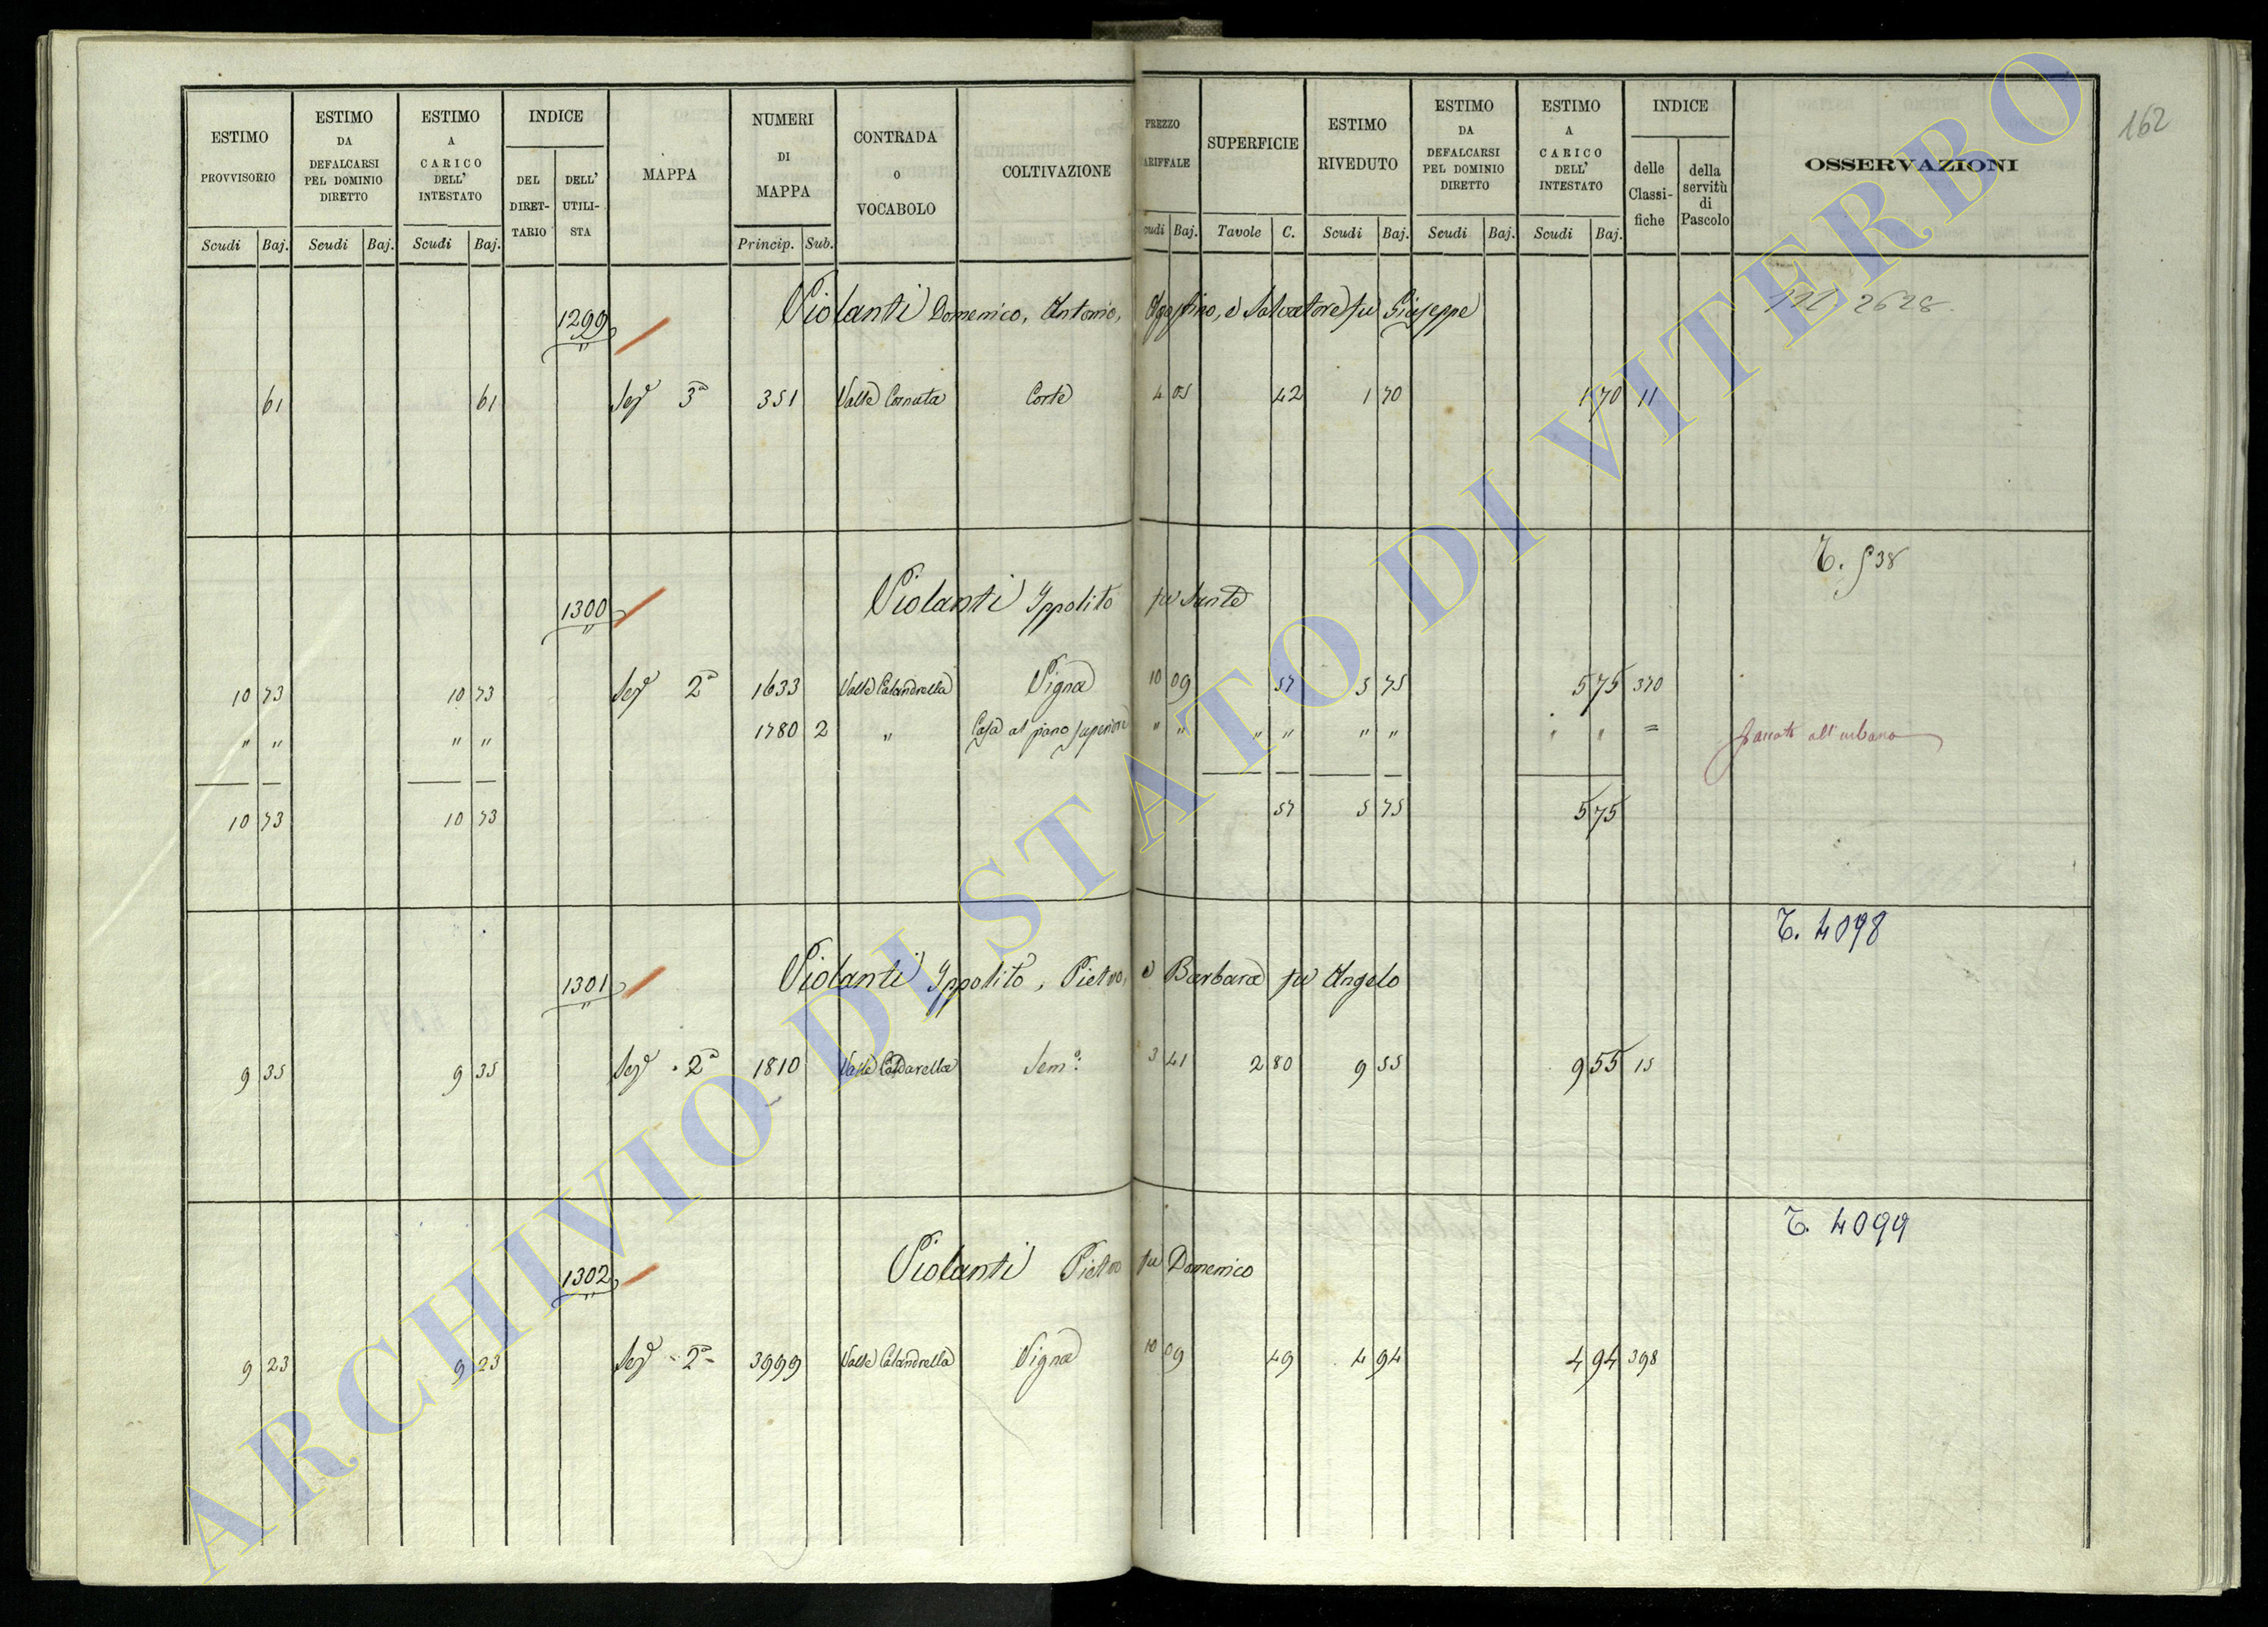 162
ESTIMO PROVVISORIO | ESTIMO DA DEFALCARSI PEL DOMINIO DIRETTO | ESTIMO A CARICO DELL' INTESTATO | INDICE | MAPPA | NUMERI DI MAPPA | CONTRADA O VOCABOLO | COLTIVAZIONE | PREZZO ARIFFALE | SUPERFICIE | ESTIMO RIVEDUTO | ESTIMO DA DEFALCARSI PEL DOMINIO DIRETTO | ESTIMO A CARICO DELL' INTESTATO | INDICE | OSSERVAZIONI
DEL DIRETTARIO | DELL' UTILISTA | delle Classifiche | della servitù di Pascolo
Scudi | Baj. | Scudi | Baj. | Scudi | Baj. | Princip. | Sub. | cudi | Baj. | Tavole | C. | Scudi | Baj. | Scudi | Baj. | Scudi | Baj.
1299 Violanti Domenico, Antonio, Agostino, e Salvatore fu Giuseppe 2628.
61 61 Sez 3ª 351 Valle Cornuta Corte 4 05 42 1 70 1 70 11
T. 538
1300 Violanti Ippolito fu Sante
10 73 10 73 Sez 2ª 1633 Valle Calandrella Vigna 10 09 57 5 75 5 75 370
" " " " 1780 2 " Casa al piano superiore " " " " " " " " = passato all'urbano
10 73 10 73 57 5 75 5 75
T. 4098
1301 Violanti Ippolito, Pietro, e Barbara fu Angelo
9 35 9 35 Sez 2ª 1810 Valle Caldarella Sem.º 3 41 2 80 9 55 9 55 15
T. 4099
1302 Violanti Pietro fu Domenico
9 23 9 23 Sez 2ª 3999 Valle Calandrella Vigna 10 09 49 4 94 4 94 398
ARCHIVIO DI STATO DI VITERBO